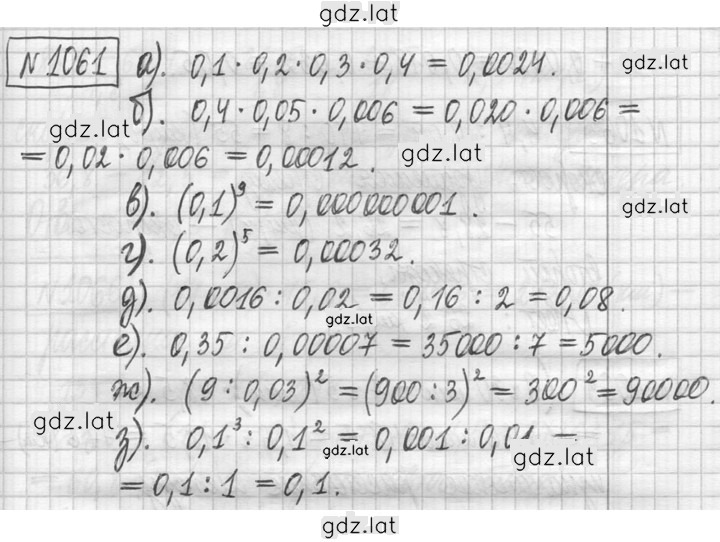 gdz.lat
№ 1061 а). 0,1 · 0,2 · 0,3 · 0,4 = 0,0024. gdz.lat
б). 0,4 · 0,05 · 0,006 = 0,020 · 0,006 =
gdz.lat
= 0,02 · 0,006 = 0,00012. gdz.lat
в). (0,1)⁹ = 0,000000001. gdz.lat
г). (0,2)⁵ = 0,00032.
д). 0,0016 : 0,02 = 0,16 : 2 = 0,08.
gdz.lat
е). 0,35 : 0,00007 = 35000 : 7 = 5000.
ж). (9 : 0,03)² = (900 : 3)² = 300² = 90000.
gdz.lat
з). 0,1³ : 0,1² = 0,001 : 0,01 =
gdz.lat gdz.lat
= 0,1 : 1 = 0,1.
gdz.lat